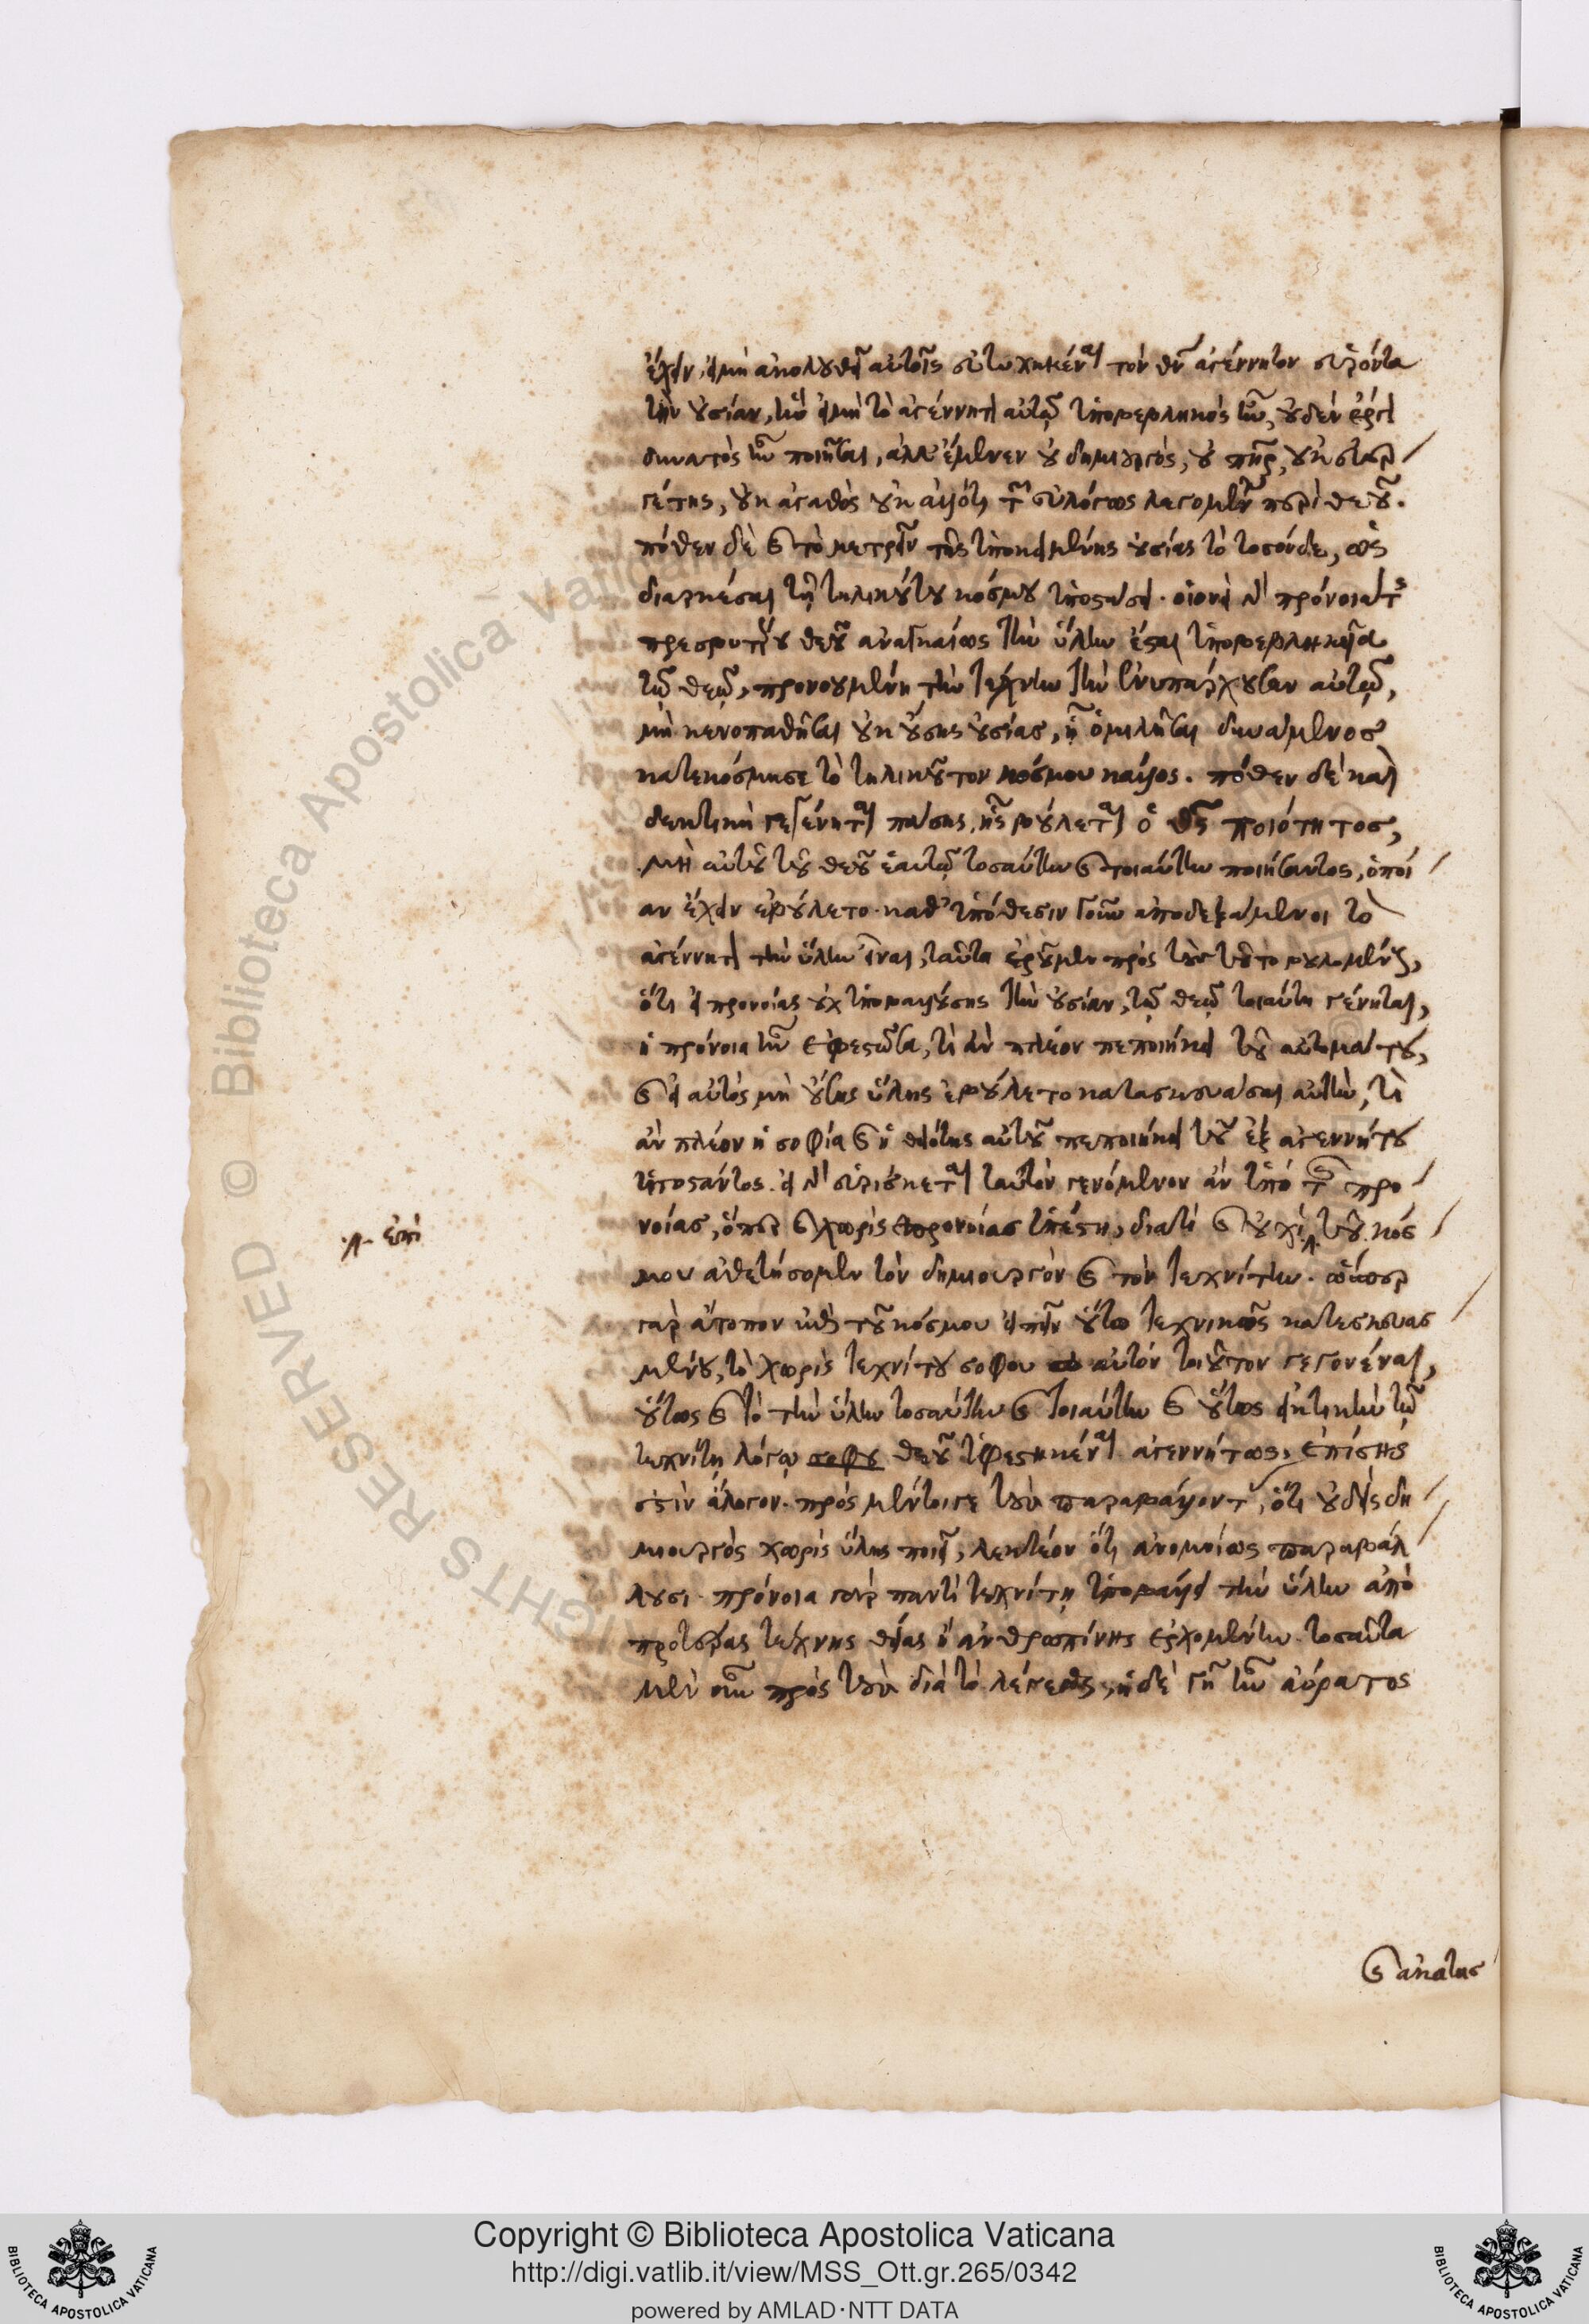 ἔχειν, εἰ μὴ ἀκολουθεῖ αὐτοῖς εὐτυχηκέναι τὸν θεὸν ἀγέννητον εὑρόντα
τὴν οὐσίαν, ἣν εἰ μὴ τὸ ἀγέννητον αὐτῷ ὑποβεβληκὸς ἦν, οὐδὲν ἔργον
δυνατὸς ἦν ποιῆσαι, ἀλλ' ἔμενεν οὐ δημιουργός, οὐ πατήρ, οὐκ εὐερ
γέτης, οὐκ ἀγαθὸς οὐκ ἄλλό τι τῶν εὐλόγως λεγομένων περὶ θεοῦ.
πόθεν δὲ καὶ τὸ μετρεῖν τῆς ὑποκειμένης οὐσίας τὸ τοσόνδε, ὡς
διαρκέσαι τῇ τηλικούτου κόσμου ὑποστάσει. οἱονεὶ γὰρ πρόνοιά τις
πρεσβυτέρα θεοῦ ἀναγκαίως τὴν ὕλην ἔσται ὑποβεβληκυῖα
τῷ θεῷ, προνοουμένη τὴν τέχνην τὴν ἐνυπάρχουσαν αὐτῷ,
μὴ κενοπαθῆσαι οὐκ οὔσης οὐσίας, ᾗ ὁμιλῆσαι δυνάμενος
κατεκόσμησε τὸ τηλικοῦτον κόσμου κάλλος. πόθεν δὲ καὶ
δεκτικὴ γεγένηται πάσης, ἧς βούλεται ὁ θεὸς ποιότητος,
μὴ αὐτοῦ τοῦ θεοῦ ἑαυτῷ τοσαύτην καὶ τοιαύτην ποιήσαντος, ὁποί
αν ἔχειν ἐβούλετο. καθ' ὑπόθεσιν τοίνυν ἀποδεξάμενοι τὸ
ἀγέννητον τὴν ὕλην εἶναι, ταῦτα ἐροῦμεν πρὸς τοὺς τοῦτο βουλομένους,
ὅτι εἰ προνοίας οὐχ ὑποβαλλούσης τὴν οὐσίαν, τῷ θεῷ τοιαύτη γένηται,
ἡ πρόνοια ἦν ὑφεστῶσα, τί ἂν πλέον πεποιήκει τοῦ αὐτομάτου,
καὶ εἰ αὐτὸς μὴ οὔσης ὕλης ἐβούλετο κατασκευάσαι αὐτήν, τί
ἂν πλέον ἡ σοφία καὶ ἡ θειότης αὐτοῦ πεποιήκει τοῦ ἐξ ἀγεννήτου
ὑποστάντος. εἰ γὰρ εὑρίσκεται ταὐτὸν γενόμενον ἂν ὑπὸ τῆς προ
νοίας, ὅπερ καὶ χωρὶς προνοίας ὑπέστη, διατί καὶ οὐχὶ τοῦ κόσ
μου ἀθετήσομεν τὸν δημιουργὸν καὶ τὸν τεχνίτην. ὥσπερ
γὰρ ἄτοπον ἐπὶ τοῦ κόσμου εἰπεῖν οὕτω τεχνικῶς κατεσκευασ
μένου, τὸ χωρὶς τεχνίτου σοφοῦ αὐτὸν τοιοῦτον γεγονέναι,
οὕτως καὶ τὸ τὴν ὕλην τοσαύτην καὶ τοιαύτην καὶ οὕτως εἰκτικὴν τῷ
τεχνίτῃ λόγῳ σοφοῦ θεοῦ ὑφεστηκέναι ἀγεννήτως, ἐπίσης
ἐστὶν ἄλογον. πρὸς μέντοιγε τοὺς παραβάλλοντας, ὅτι οὐδεὶς δη
μιουργὸς χωρὶς ὕλης ποιεῖ, λεκτέον ὅτι ἀνομοίως παραβάλ
λουσι. πρόνοια γὰρ παντὶ τεχνίτῃ ὑποβάλλει τὴν ὕλην ἀπὸ
προτέρας τέχνης θείας ἢ ἀνθρωπίνης ἐρχομένην. τοσαῦτα
μὲν οὖν πρὸς τοὺς διὰ τὸ λέγεσθαι, ἡ δὲ γῆ ἦν ἀόρατος
λ- ἐπὶ
καὶ ἀκατασ
Copyright © Biblioteca Apostolica Vaticana
http://digi.vatlib.it/view/MSS_Ott.gr.265/0342
powered by AMLAD·NTT DATA
BIBLIOTECA APOSTOLICA VATICANA
BIBLIOTECA APOSTOLICA VATICANA
RIGHTS RESERVED © Biblioteca Apostolica Vaticana